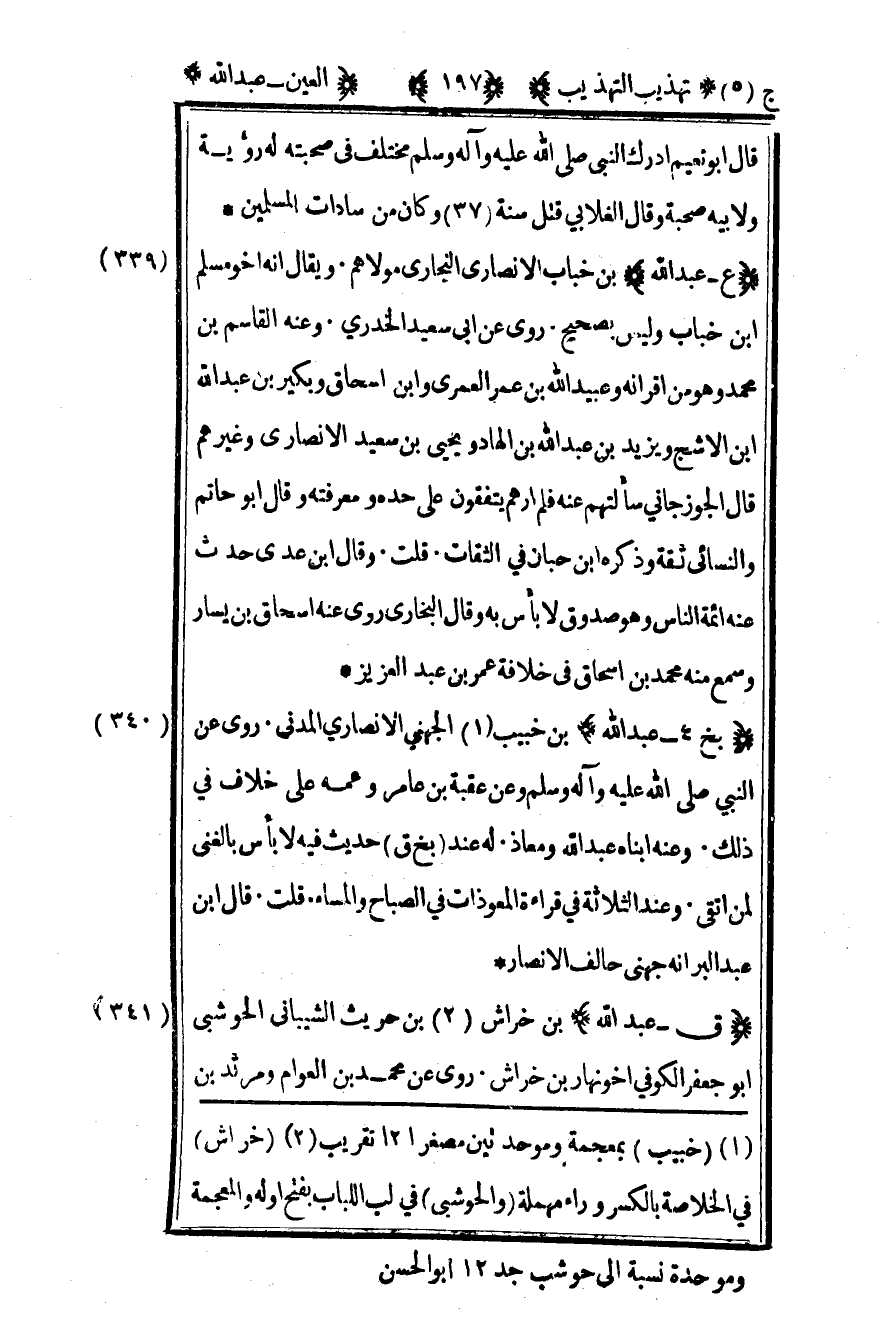 ج (٥) * تهذيب التهذيب ﴿ ١٩٧ ﴾ ﴿ العين ـ عبدالله *
قال ابونعيم ادرك النبي صلى الله عليه وآله وسلم مختلف فى صحبته له رؤية
ولابيه صحبة وقال الغلابي قتل سنة (٣٧) وكان من سادات المسلمين *
﴿ ع ـ عبدالله ﴾ بن خباب الانصارى النجارى مولاهم ٠ ويقال انه اخو مسلم (٣٣٩)
ابن خباب وليس بصحيح ٠ روى عن ابى سعيد الخدري ٠ وعنه القاسم بن
محمد وهو من اقرانه وعبيدالله بن عمر العمرى وابن اسحاق وبكير بن عبدالله
ابن الاشج ويزيد بن عبدالله بن الهاد ويحيى بن سعيد الانصارى وغيرهم
قال الجوزجاني سألتهم عنه فلم ارهم يتفقون على حده ومعرفته وقال ابو حاتم
والنسائى ثقة وذكره ابن حبان في الثقات ٠ قلت ٠ وقال ابن عدى حدث
عنه ائمة الناس وهو صدوق لا بأس به وقال البخارى روى عنه اسحاق بن يسار
وسمع منه محمد بن اسحاق فى خلافة عمر بن عبد العزيز *
﴿ بخ ٤ ـ عبدالله ﴾ بن خبيب (١) الجهني الانصاري المدنى ٠ روى عن (٣٤٠)
النبي صلى الله عليه وآله وسلم وعن عقبة بن عامر وعمه على خلاف في
ذلك ٠ وعنه ابناه عبدالله ومعاذ ٠ له عند (بخ ق) حديث فيه لا بأس بالغنى
لمن اتقى ٠ وعند الثلاثة في قراءة المعوذات في الصباح والمساء ٠ قلت ٠ قال ابن
عبدالبر انه جهنى حالف الانصار *
﴿ ق ـ عبد الله ﴾ بن خراش (٢) بن حريث الشيبانى الحوشبى (٣٤١)
ابو جعفر الكوفي اخونهار بن خراش ٠ روى عن محمد بن العوام ومرثد بن
(١) (خبيب) بمعجمة وموحدتين مصغر ١٢ تقريب (٢) (خراش)
في الخلاصة بالكسر وراء مهملة (والحوشبى) في لب اللباب بفتح اوله والمعجمة
وموحدة نسبة الى حوشب جد ١٢ ابوالحسن